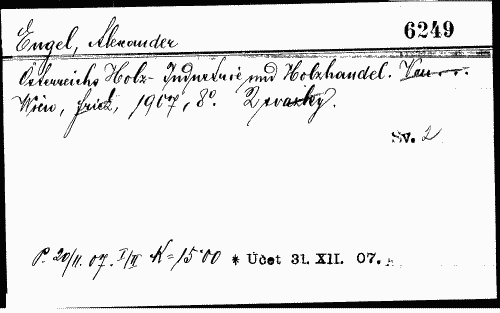 Engel, Alexander
6249
Österreichs Holz-Industrie und Holzhandel.
Wien, Frick, 1907, 8º. 2 svazky.
Sv. 2
P. 20/11. 07. I/II K= 15·00 * Účet 31. XII. 07.